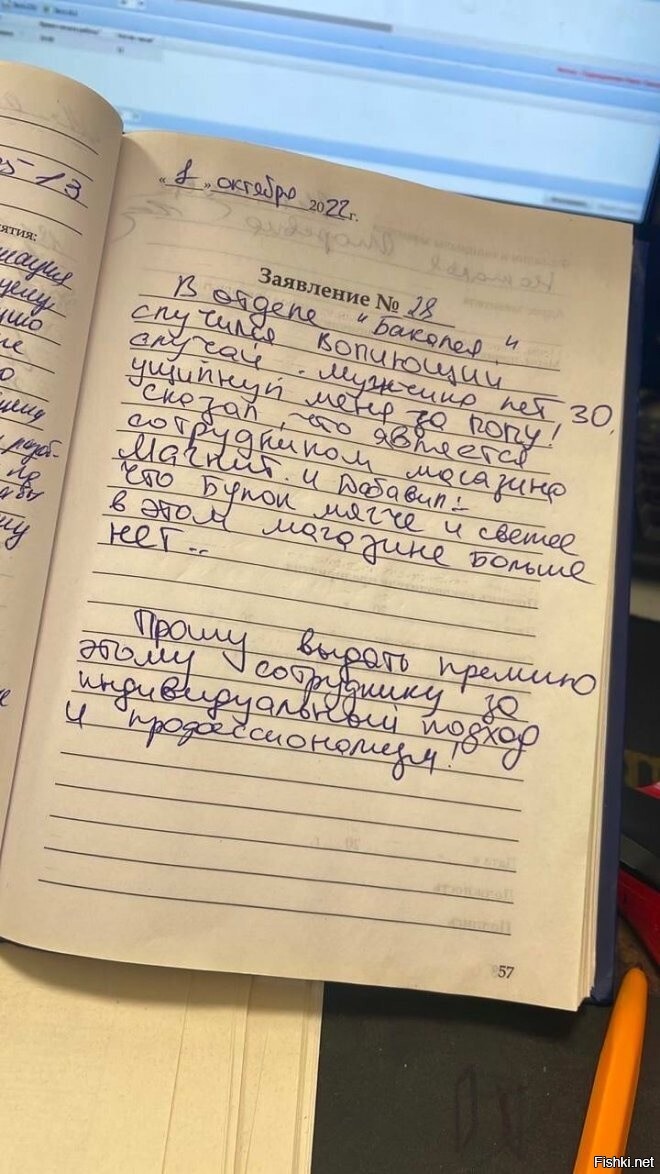 "1" октября 2022г.
Заявление № 28
В отделе "Бакалея"
случился вопиющий
случай. Мужчина лет 30,
ущипнул меня за попу!
Сказал, что является
сотрудником магазина
Магнит. И Добавил:-
что Булок мягче и свежее
в этом магазине больше
нет..
Прошу выдать премию
этому сотруднику за
индивидуальный подход
и профессионализм!
57
Fishki.net